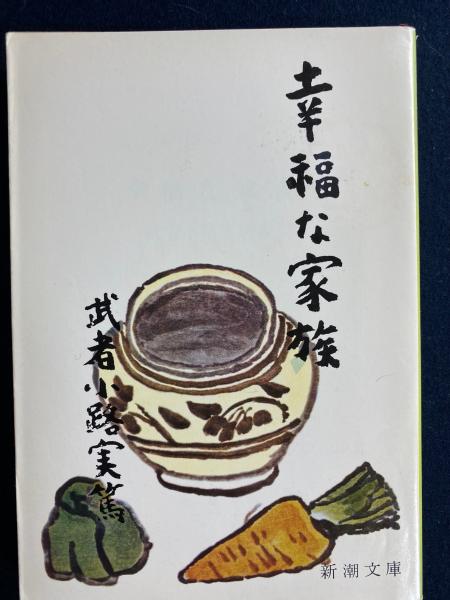 幸福な家族
武者小路実篤
新潮文庫